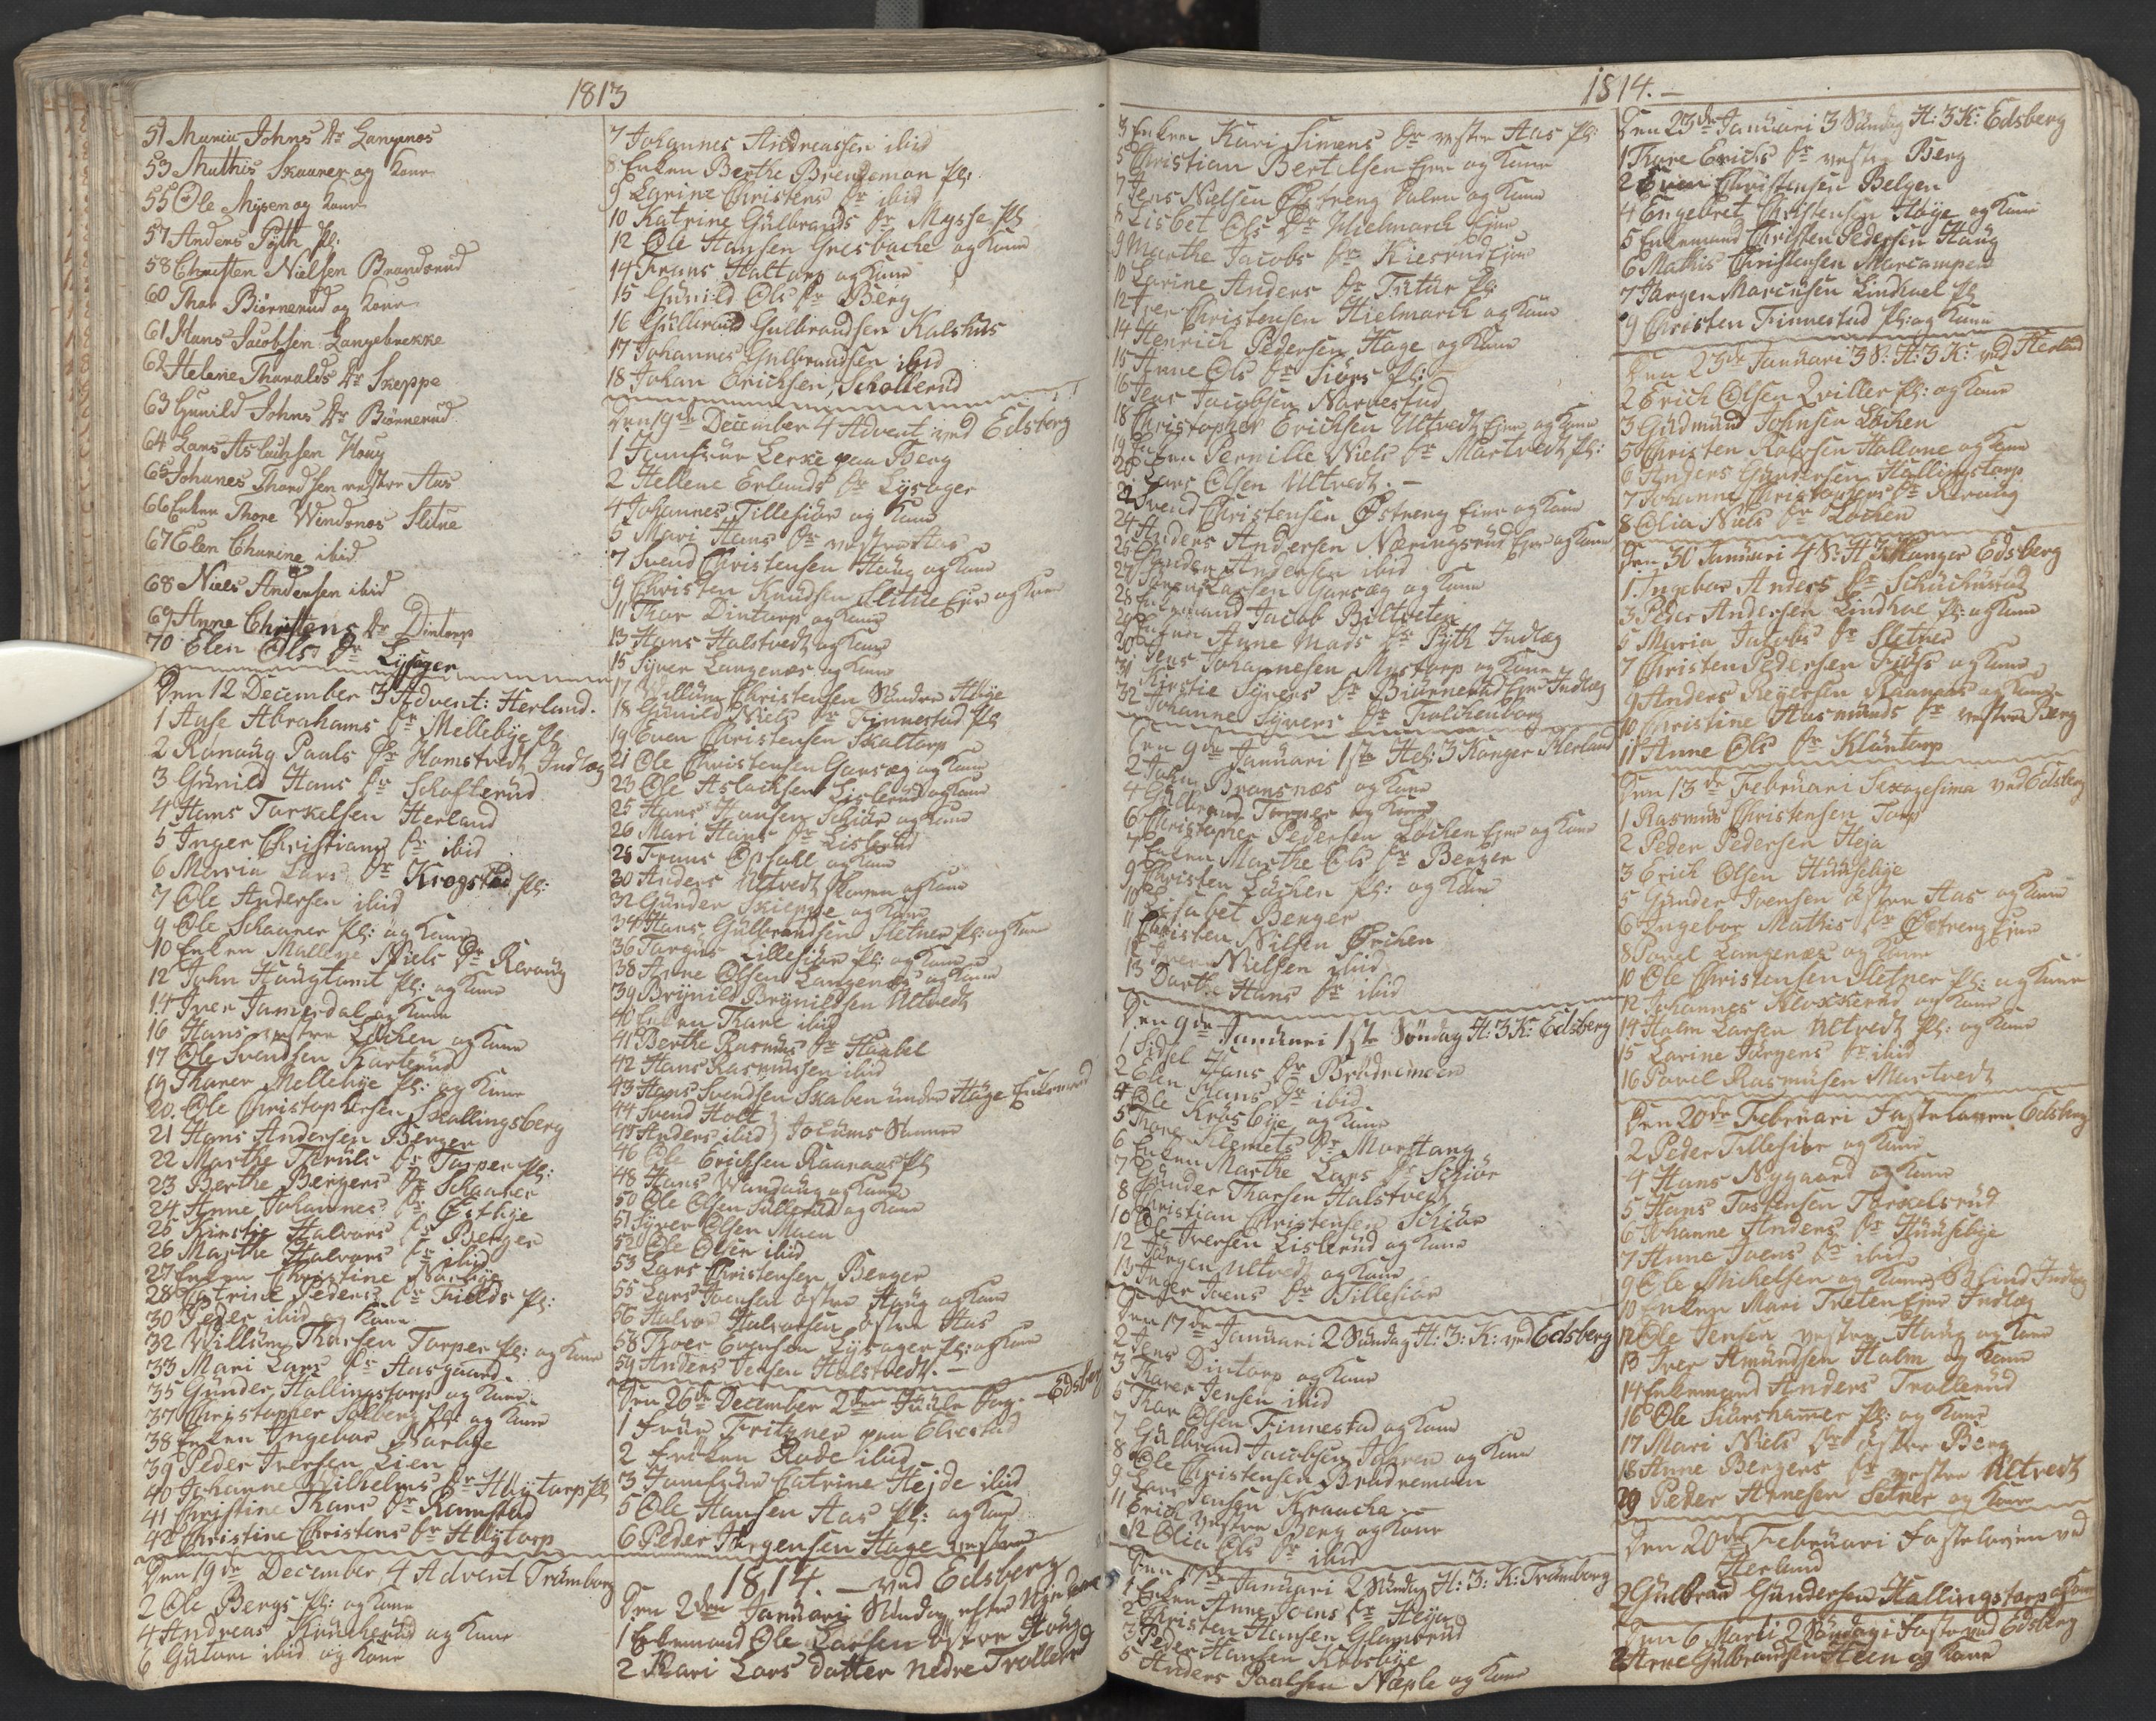 1813
51 Maria Johns dr Langenæs
53 Mathis Skaurer og Kone
55 Ole Mysen og Kone
57 Anders Pyth Pl:
58 Christen Nielsen Brandsrud
60 Thor Biørnerud og Kone
61 Hans Jacobsen Langebrekke
62 Helene Thoralds dr Skeppe
63 Gunild Johns dr Biørnerud
64 Lars Aslachsen Houg
65 Johanes Thordsen vestre Aas
66 Enken Thore Windenes Slitue
67 Elen Chatrine ibid
68 Niels Andersen ibid
69 Anne Christens dr Dintorp
70 Elen Ols dr Lysager
Den 12 December 3 Advent: Herland.
1 Aase Abrahams dr Mellebye Pl
2 Ranaug Pauls dr Hamstvedt Indlæg
3 Gunild Hans dr Schofterud
4 Hans Torkelsen Herland
5 Inger Christians dr ibid
6 Maria Lars dr Krogstad Pl:
7 Ole Andersen ibid
9 Ole Schaaner Pl: og Kone
10 Enken Mallene Niels dr Revoug
12 John Haugtomt Pl: og Kone
14 Iver Jamerdal og Kone
16 Hans vestre Løchen og Kone
17 Ole Svendsen Karterud
19 Tharer Mellebye Pl: og Kone
20 Ole Christophersen Skallingsberg
21 Hans Andersen Berger
22 Marthe Thruls dr Torper Pl:
23 Berthe Bergers dr Schaaner
24 Anne Johannes dr Østbye
25 Kirstie Halvors dr Berger
26 Marthe Halvors dr ibid
27 Enken Christine Narbye
28 Catrine Peders dr Fields Pl:
30 Peder ibid og Kone
32 Willum Thorsen Torper Pl: og Kone
33 Mari Lars dr Aasgaard
35 Gunder Hallingstorp og Kone
37 Christopher Solberg Pl: og Kone
38 Enken Ingebor Narbye
39 Peder Iversen Lien
40 Johanne Wilhelms dr Høytorp Pl
41 Christine Thors dr Ramstad
42 Christine Christens dr Høytorp
Den 19de December 4 Advent Trømborg
2 Ole Bergs Pl: og Kone
4 Andreas Kuncherud og Kone
6 Gutori ibid og Kone
7 Johannes Andreassen ibid
8 Enken Berthe Brendemoen Pl:
9 Larine Christens dr ibid
10 Katrine Gulbrands dr Mysse Pl
12 Ole Hansen Gresbache og Kone
14 Frans Haltorp og Kone
15 Gunild Ols dr Berg
16 Gulbrand Gulbrandsen Kalshus
17 Johannes Gulbrandsen ibid
18 Johan Erichsen Schollerud
Den 19de December 4 Advent ved Edsberg
1 Jomfrue Lerke paa Berg
2 Hellene Erlands dr Lysager
4 Johannes Tillesiør og Kone
5 Mari Hans dr vestre Aas
7 Svend Christensen Haug og Kone
9 Christen Knudsen Slitue Ejer og Kone
11 Thor Dintorp og Kone
13 Hans Halstvedt og Kone
15 Syver Langenæs og Kone
17 Willum Christensen Søndre Høye
18 Gunild Niels dr Finnestad Pl
19 Even Christensen Skaltorp
21 Ole Christensen Garseg og Kone
23 Ole Aslachsen Lislerud og Kone
25 Hans Hansen Schiør og Kone
26 Mari Hans dr Lislerud
28 Frans Opsahl og Kone
30 Anders Ultvedt Skoven og Kone
32 Gunder Skieppe og Kone
34 Hans Gulbrandsen Sletner Pl: og Kone
36 Torgius Lillesiør Pl: og Kone
38 Arne Olsen Langenes og Kone
39 Brynild Brynildsen Ultvedt
40 Enken Thore ibid
41 Berthe Rasmus dr Haabel
42 Hans Rasmussen ibid
43 Hans Svendsen Skaben under Høye Enkemand
44 Svend Holt
45 Anders ibid Jocums Sønner
46 Ole Erichsen Raanaas Pl
48 Hans Wandaug og Kone
50 Ole Olsen Sullerud og Kone
51 Syver Olsen Moen
52 Ole Olsen ibid
53 Lars Christensen Berger
55 Lars Joensen østre Haug og Kone
56 Halvor Halvorsen østre Aas
58 Thoer Evensen Lysager Pl: og Kone
59 Anders Jensen Halstvedt.
Den 26de December 2den Juule Dag. Edsberg
1 Frue Fritzner paa Elvestad
2 Frøken Rode ibid
3 Jomfrue Catrine Hejde ibid
5 Ole Hansen Aas Pl: og Kone
6 Peder Jørgensen Hage vestre
1814. ved Edsberg
Den 2den Januari Søndag efter Nye aar
1 Enkemand Ole Larsen østre Houg
2 Kari Lars datter nedre Trollerud
1814.
3 Enken Kari Simens dr vestre Aas Pl:
5 Christian Bertelsen Ejer og Kone
7 Jens Nielsen Østreng og Kone
8 Lisbet Ols dr Hielmarch Ejer
9 Marthe Jacobs dr Kiesrud Ejer
10 Larine Anders dr Tutur Pl:
12 Iver Christensen Hielmarch og Kone
14 Henrich Pedersen Hage og Kone
15 Anne Ols dr Siørs Pl:
16 Jens Jacobsen Narvestad
18 Christopher Erichsen Ultvedt Ejer og Kone
19 Enken Pernille Niels dr Martvedt Pl:
20 Lars Olsen Ultvedt.
22 Svend Christensen Østreng Ejer og Kone
24 Anders Andersen Næringsrud Ejer og Kone
25 Gunder Andersen ibid
27 Søren Larsen Garseg og Kone
28 Enkemand Jacob Biltveten
29 Enken Anne Mads dr Pyth Indlæg
30 Jens Johannesen Mustorp og Kone
31 Kirstie Syvers dr Biørnerud Ejer Indlæg
32 Johanne Syvers dr Frolichenborg
Den 9de Januari 1ste Hel: 3 Konger Herland
2 John Bransnæs og Kone
4 Gulbrand Torper og Kone
6 Christopher Pedersen Løchen Ejer og Kone
7 Enken Marthe Ols dr Berger
9 Christen Løchen Pl: og Kone
10 Lisabet Berger
11 Christen Nilsen Ørchen
12 Iver Nielsen ibid
13 Dorthe Hans dr ibid
Den 9de Januari 1ste Søndag H: 3 K: Edsberg
1 Sidsel Hans dr Brødremoen
2 Elen Hans dr ibid
4 Ole Krosbye og Kone
5 Thore Klemets dr Morttang
6 Enken Marthe Lars dr Schiør
7 Gunder Thorsen Halstvedt
8 Christian Christensen Schiør
10 Ole Iversen Lislerud og Kone
12 Jørgen Ultvedt og Kone
13 Inger Joens dr Tillesiør
Den 17de Januari 2 Søndag H: 3: K: ved Edsberg
2 Jens Dintorp og Kone
3 Karer Jensen ibid
5 Thor Olsen Finnestad og Kone
7 Gulbrand Jacobsen Joren og Kone
8 Ole Christensen Brødremoen
9 Lars Jensen Kraache
11 Erich vestre Berg og Kone
12 Olia Ols dr ibid
Den 17de Januari 2 Søndag H: 3: K: Trømborg
1 Enken Anne Joens dr Heyer
2 Christen Hansen Glamsrud
3 Peder Hansen Krosbye
5 Anders Paulsen Næple og Kone
Den 23de Januari 3 Søndag H: 3 K: Edsberg
1 Thore Erichs dr vestre Berg
2 Even Christensen Belgen
4 Engebret Christensen Høye og Kone
5 Enkemand Christen Pedersen Haug
6 Mathis Christensen Marcampen
7 Jørgen Marcusen Lindhoel Pl
9 Christen Finnestad Pl: og Kone
Den 23de Januari 3 S: H: 3 K: ved Herland
2 Erich Olsen Qviller Pl: og Kone
3 Gudmund Johnsen Løchen
5 Christen Rolvsen Hallone og Kone
6 Anders Gundersen Hallingstorp
7 Johanne Christophers dr Revaug
8 Olia Niels dr Løchen
Den 30 Januari 4 S: H 3 Konger Edsberg
1 Ingebor Anders dr Schuchurud
3 Peder Andersen Lindhoe Pl: og Kone
5 Maria Jacobs dr Sletner
7 Christen Pedersen Fiøs og Kone
9 Anders Reyersen Raanaas og Kone
10 Christine Aasmunds dr vestre Berg
11 Anne Ols dr Kluntorp
Den 13de Februari Sexagesima ved Edsberg
1 Rasmus Christensen Torp
2 Peder Pedersen Heja
3 Erich Olsen Huusebye
5 Gunder Joensen østre Aas og Kone
6 Ingebor Mathis dr Østreng Ejer
8 Povel Langenæs og Kone
10 Ole Christensen Sletner Pl: og Kone
12 Johannes Klockerud og Kone
14 Holm Larsen Ultvedt Pl: og Kone
15 Larine Jørgens dr ibid
16 Povel Rasmusen Martvedt
Den 20de Februari Fastelaven Edsberg
2 Peder Tillesiør og Kone
4 Hans Nygaard og Kone
5 Hans Tostensen Torkelsrud
6 Johanne Anders dr Huusebye
7 Anne Joens dr ibid
9 Ole Michelsen og Kone Blind Indlæg
10 Enken Mari Treten Ejer Indlæg
12 Ole Jensen vestre Haug og Kone
13 Iver Amundsen Holm og Kone
14 Enkemand Anders Trollerud
16 Ole Siørshamer Pl: og Kone
17 Mari Niels dr østre Berg
18 Anne Bergers dr vestre Ultvedt
20 Peder Arnesen Setner og Kone
Den 20de Februari Fastelaven ved
Herland
2 Gulbrand Gundersen Hallingstorp og Kone
Den 6 Marti 2 Søndag i Faste ved Edsberg
2 Arne Gulbrandsen Steen og Kone